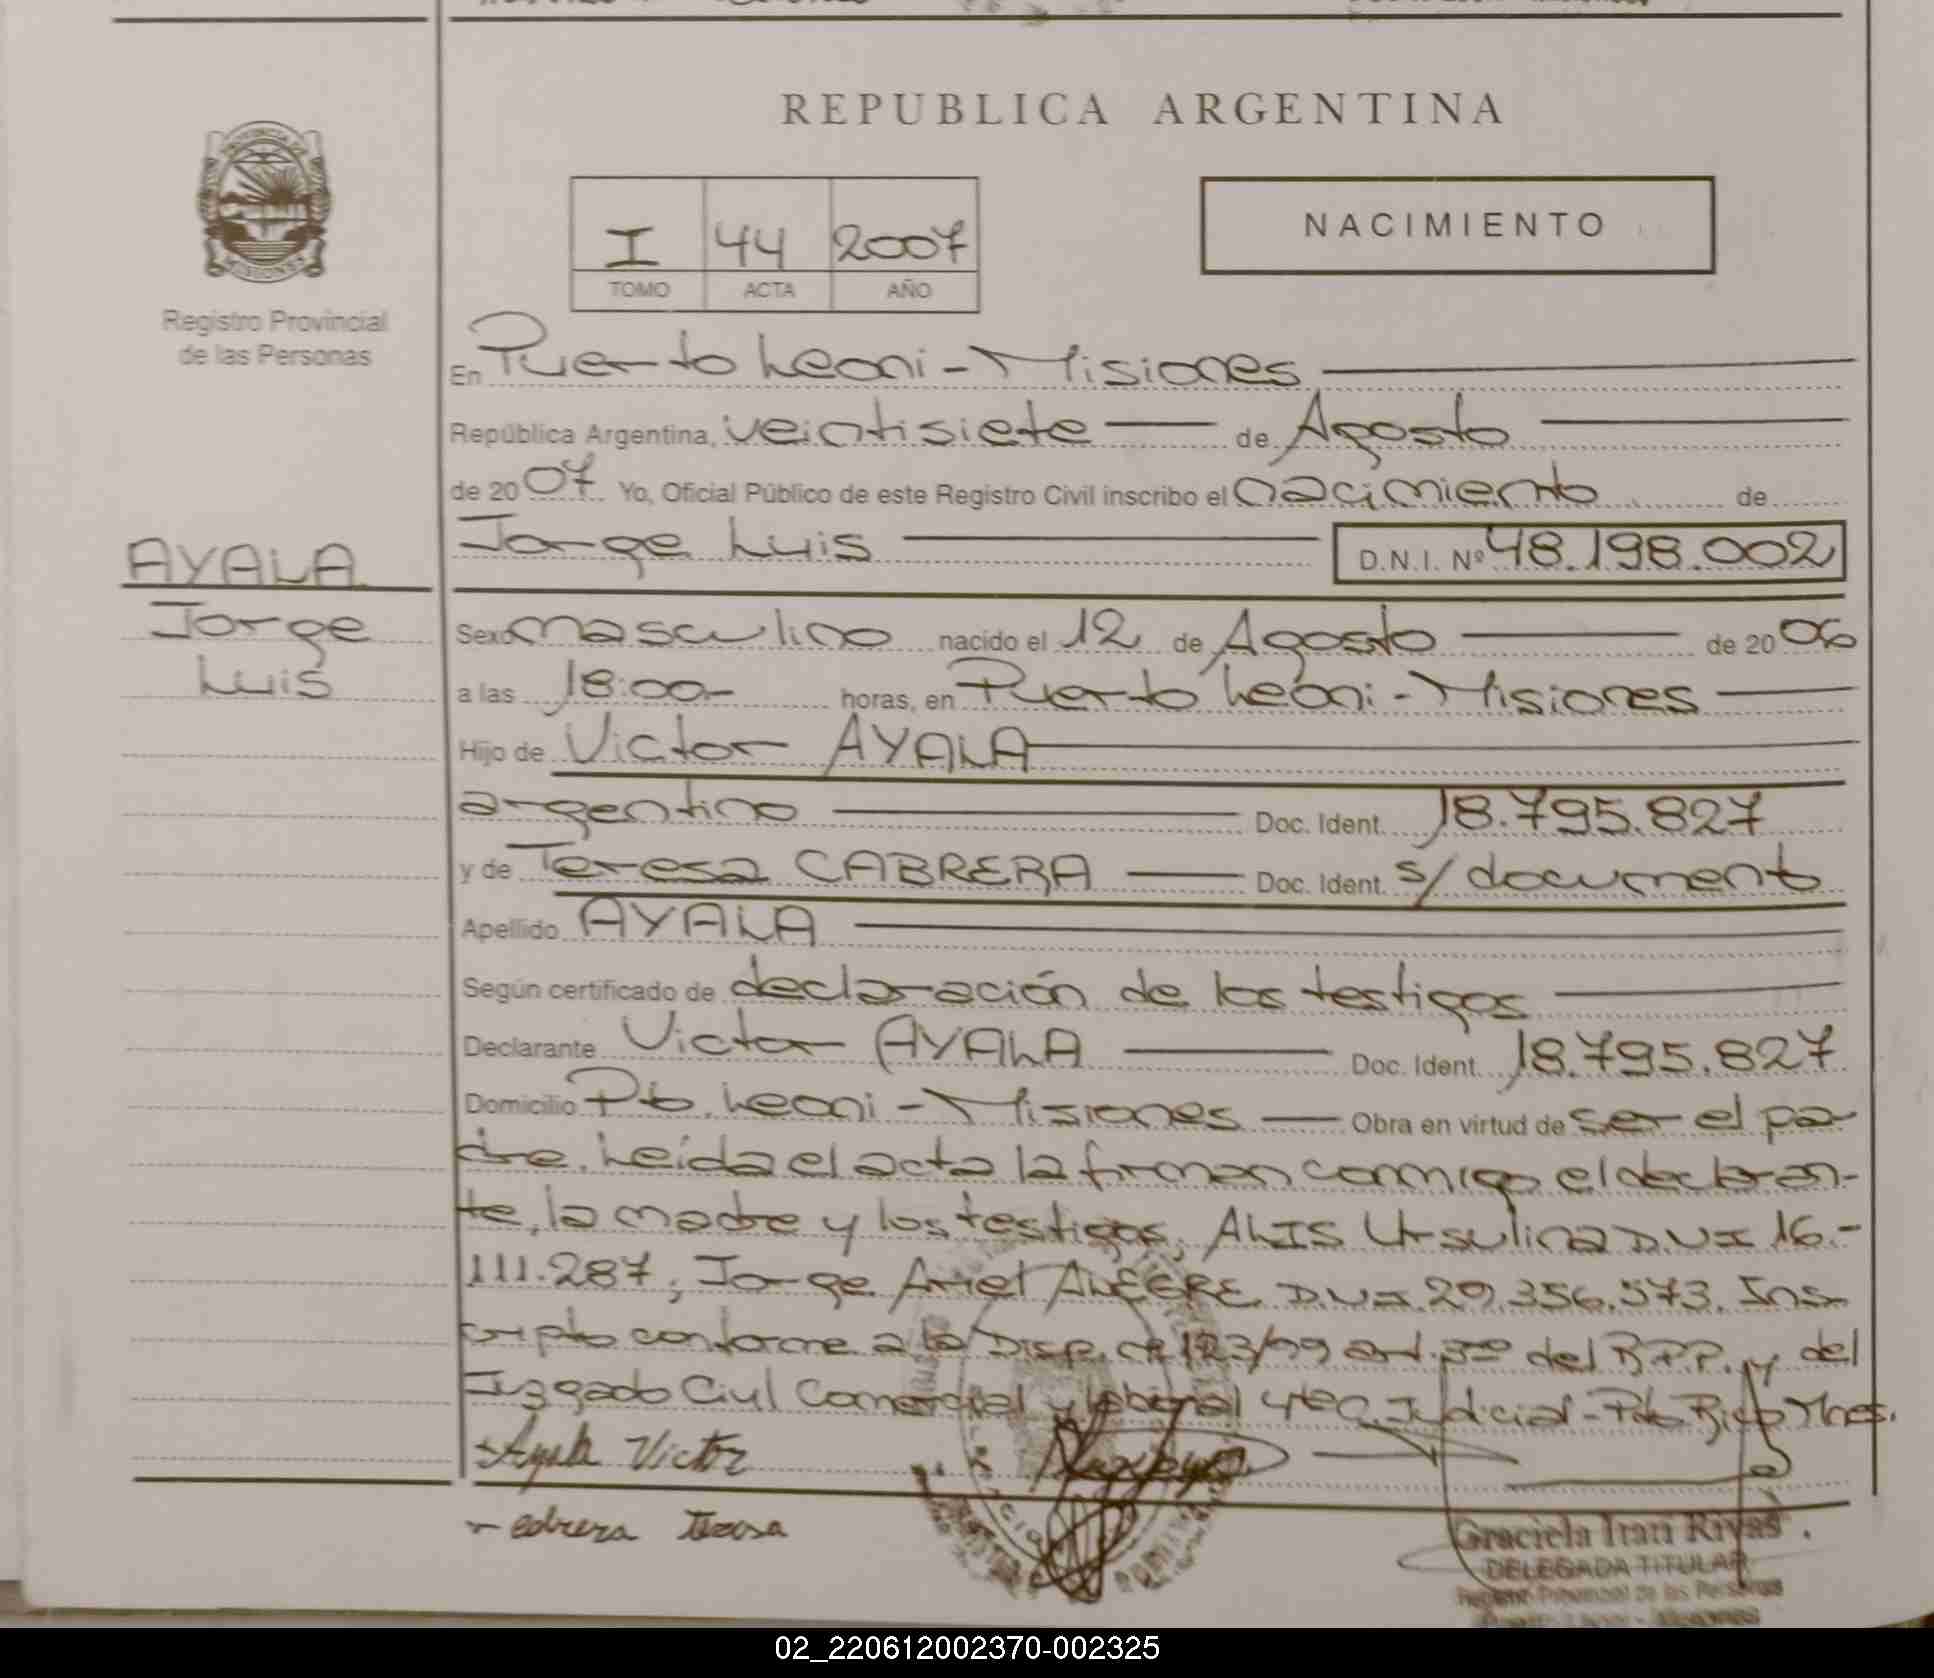 REPUBLICA ARGENTINA
PROVINCIA DE MISIONES
Registro Provincial
de las Personas
I 44 2007
TOMO ACTA AÑO
NACIMIENTO
En Puerto Leoni - Misiones
República Argentina, veintisiete de Agosto
de 2007 Yo, Oficial Público de este Registro Civil inscribo el nacimiento de
AYALA
Jorge Luis D.N.I. Nº 48.198.002
Jorge
Luis
Sexo masculino nacido el 12 de Agosto de 2006
a las 18:00 horas, en Puerto Leoni - Misiones
Hijo de Victor AYALA
argentino Doc. Ident. 18.795.827
y de Teresa CABRERA Doc. Ident. s/documento
Apellido AYALA
Según certificado de declaración de los testigos
Declarante Victor AYALA Doc. Ident. 18.795.827
Domicilio Pto. Leoni - Misiones Obra en virtud de ser el pa-
dre. Leída el acta la firman conmigo el declaran-
te, la madre y los testigos, ALIS Ursulina D.U.I 16.-
111.287, Jorge Ariel ALEGRE D.U.I 29.356.573. Ins-
cripto conforme a la Disp. 123/99 art. 3º del R.P.P. y del
Juzgado Civil Comercial y laboral 4ta C. Judicial - Pto Rico Mnes.
Ayala Victor
cabrera Teresa
Graciela Irari Rivas
DELEGADA TITULAR
Registro Provincial de las Personas
Puerto Leoni - Misiones
02_220612002370-002325